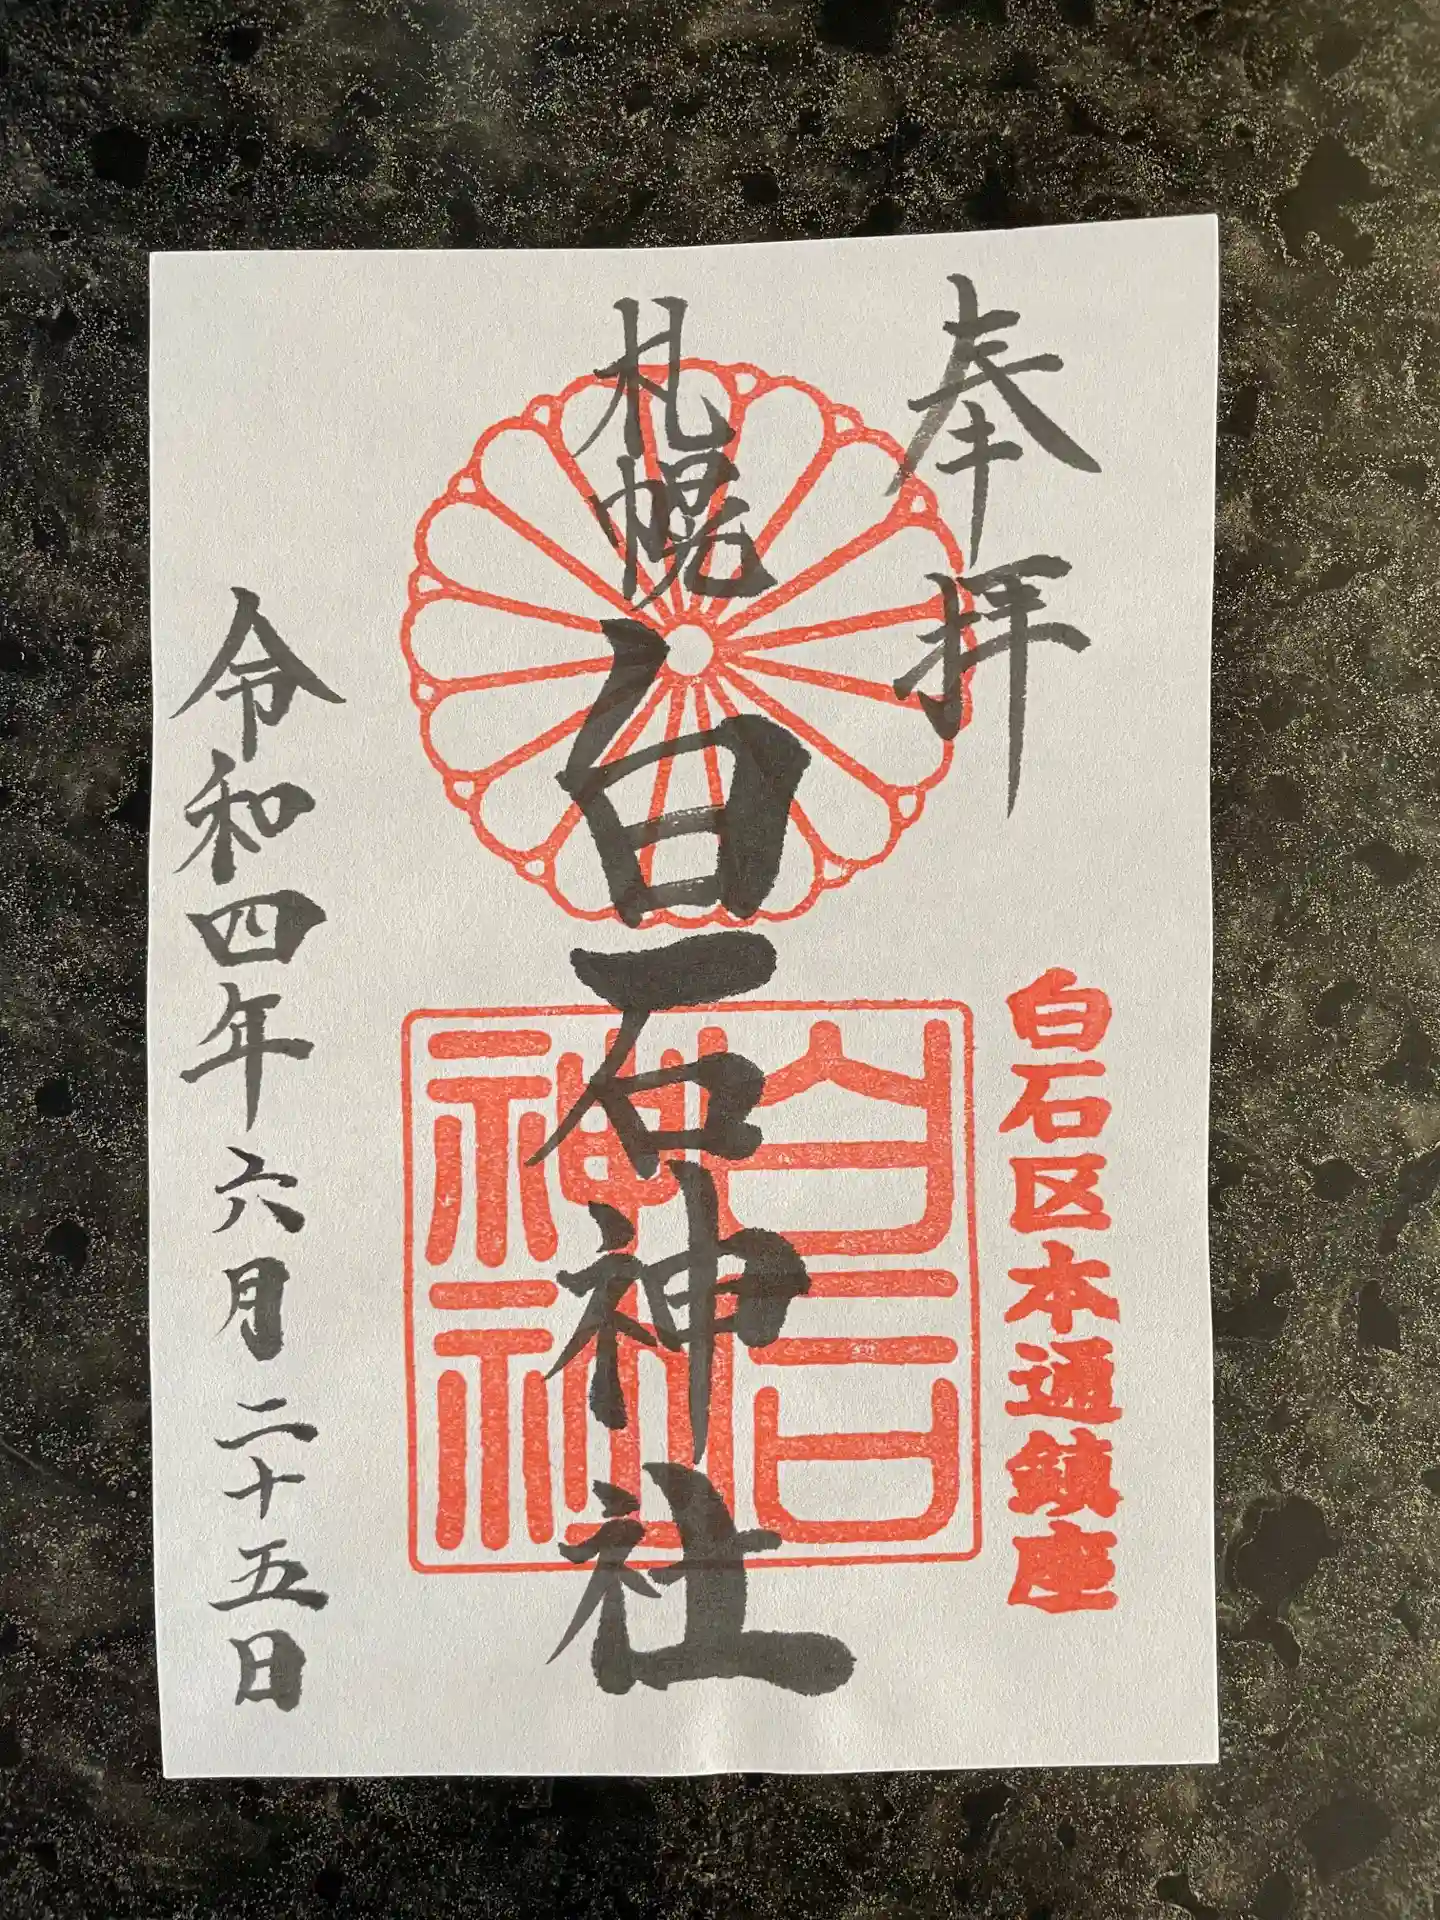 奉拝
白石区本通鎮座
札幌白石神社
白石
神社
令和四年六月二十五日